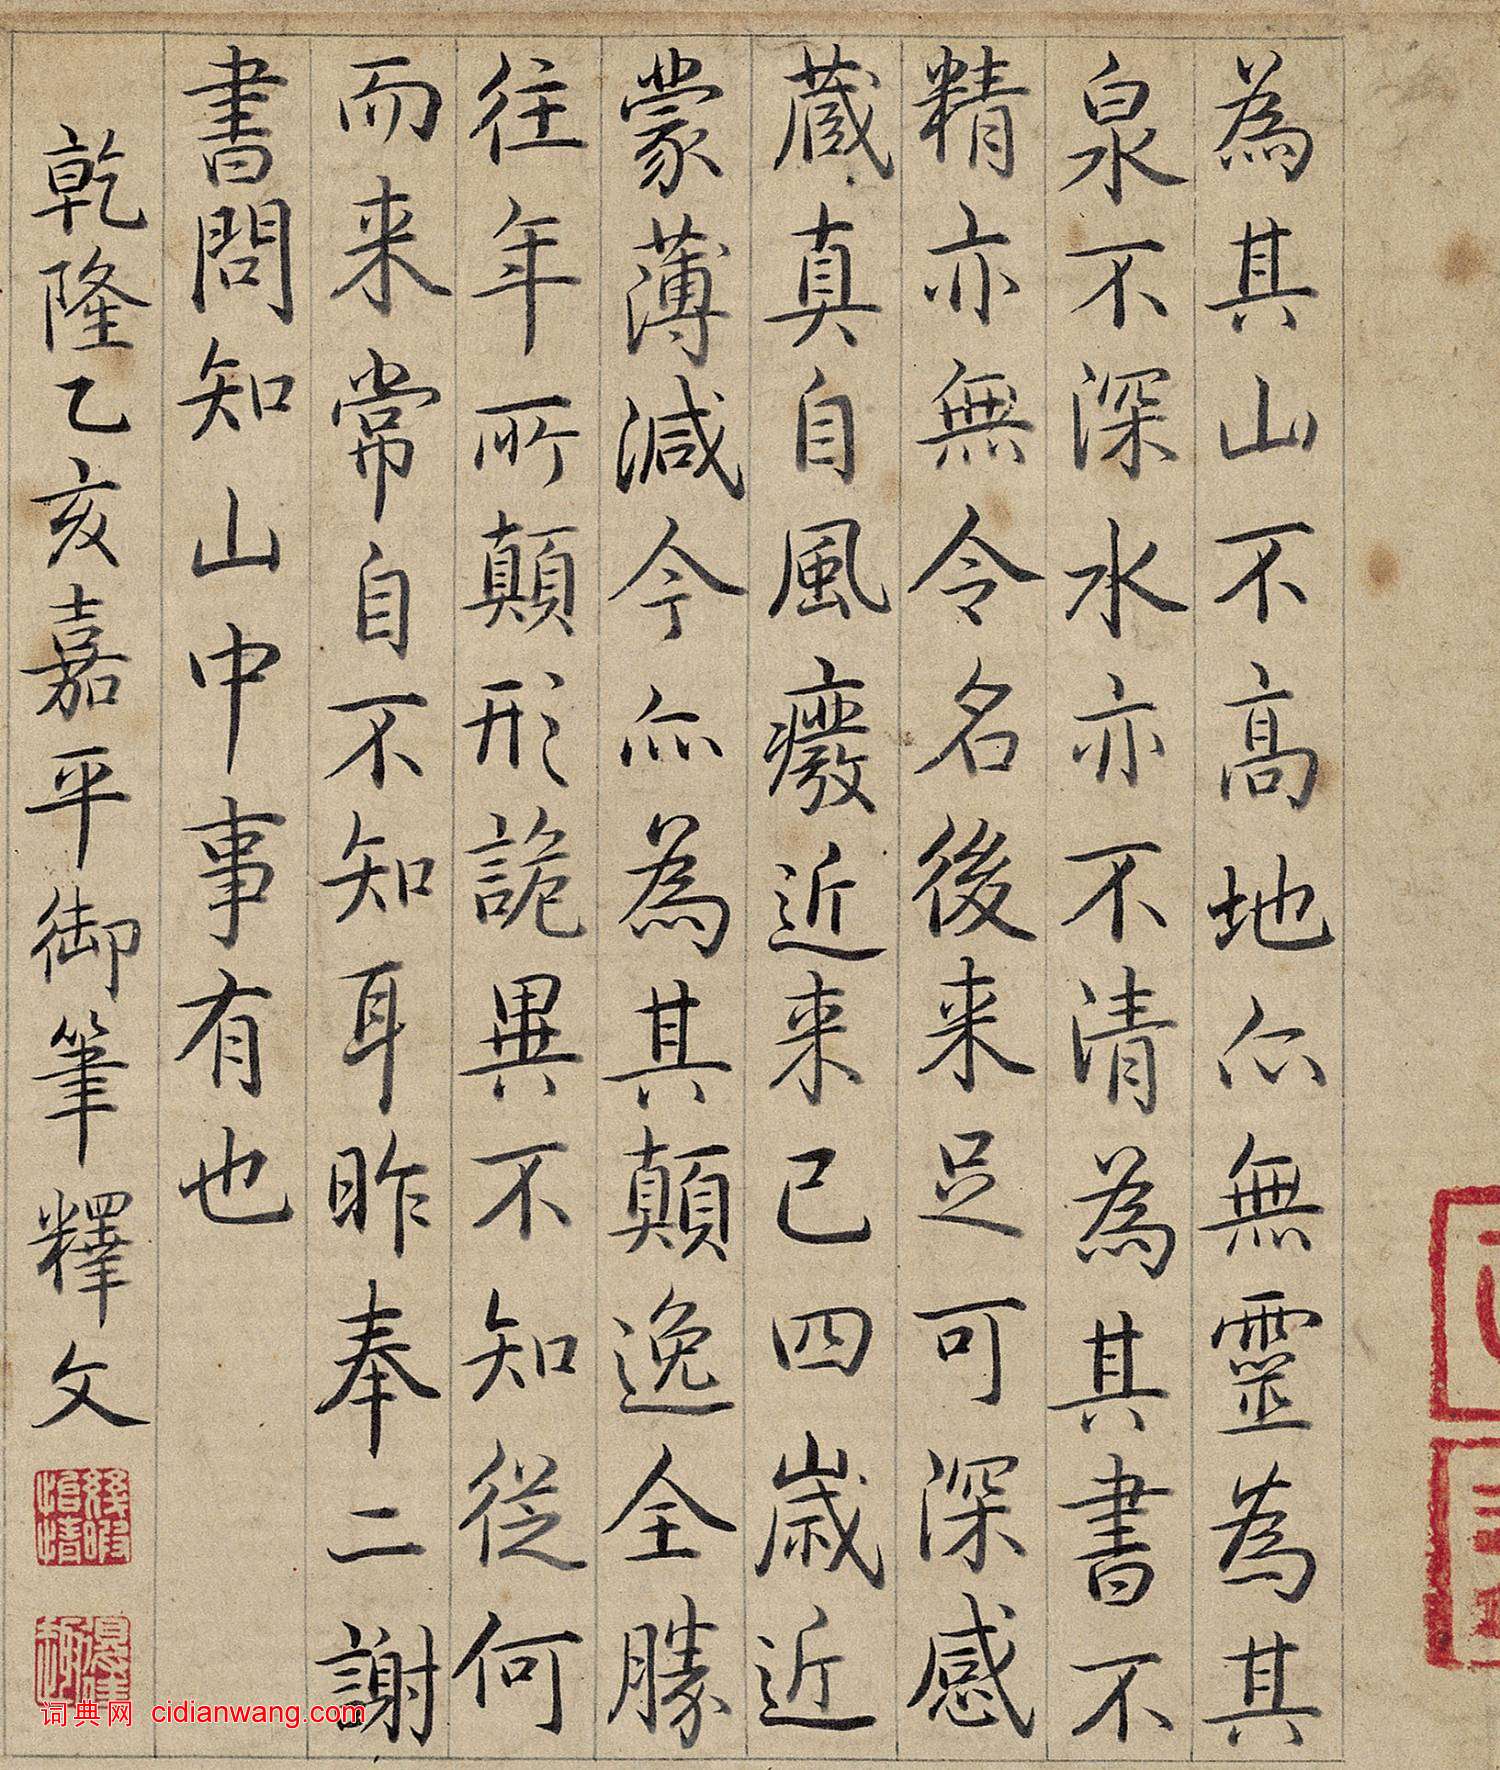 為其山不高地亦無靈為其
泉不深水亦不清為其書不
精亦無令名後来足可深感
蔵真自風癈近来已四歳近
蒙薄減今亦為其顛逸全勝
往年所顛形詭異不知従何
而来常自不知耳昨奉二謝
書問知山中事有也
乾隆乙亥嘉平御筆釋文
词典网 cidianwang.com